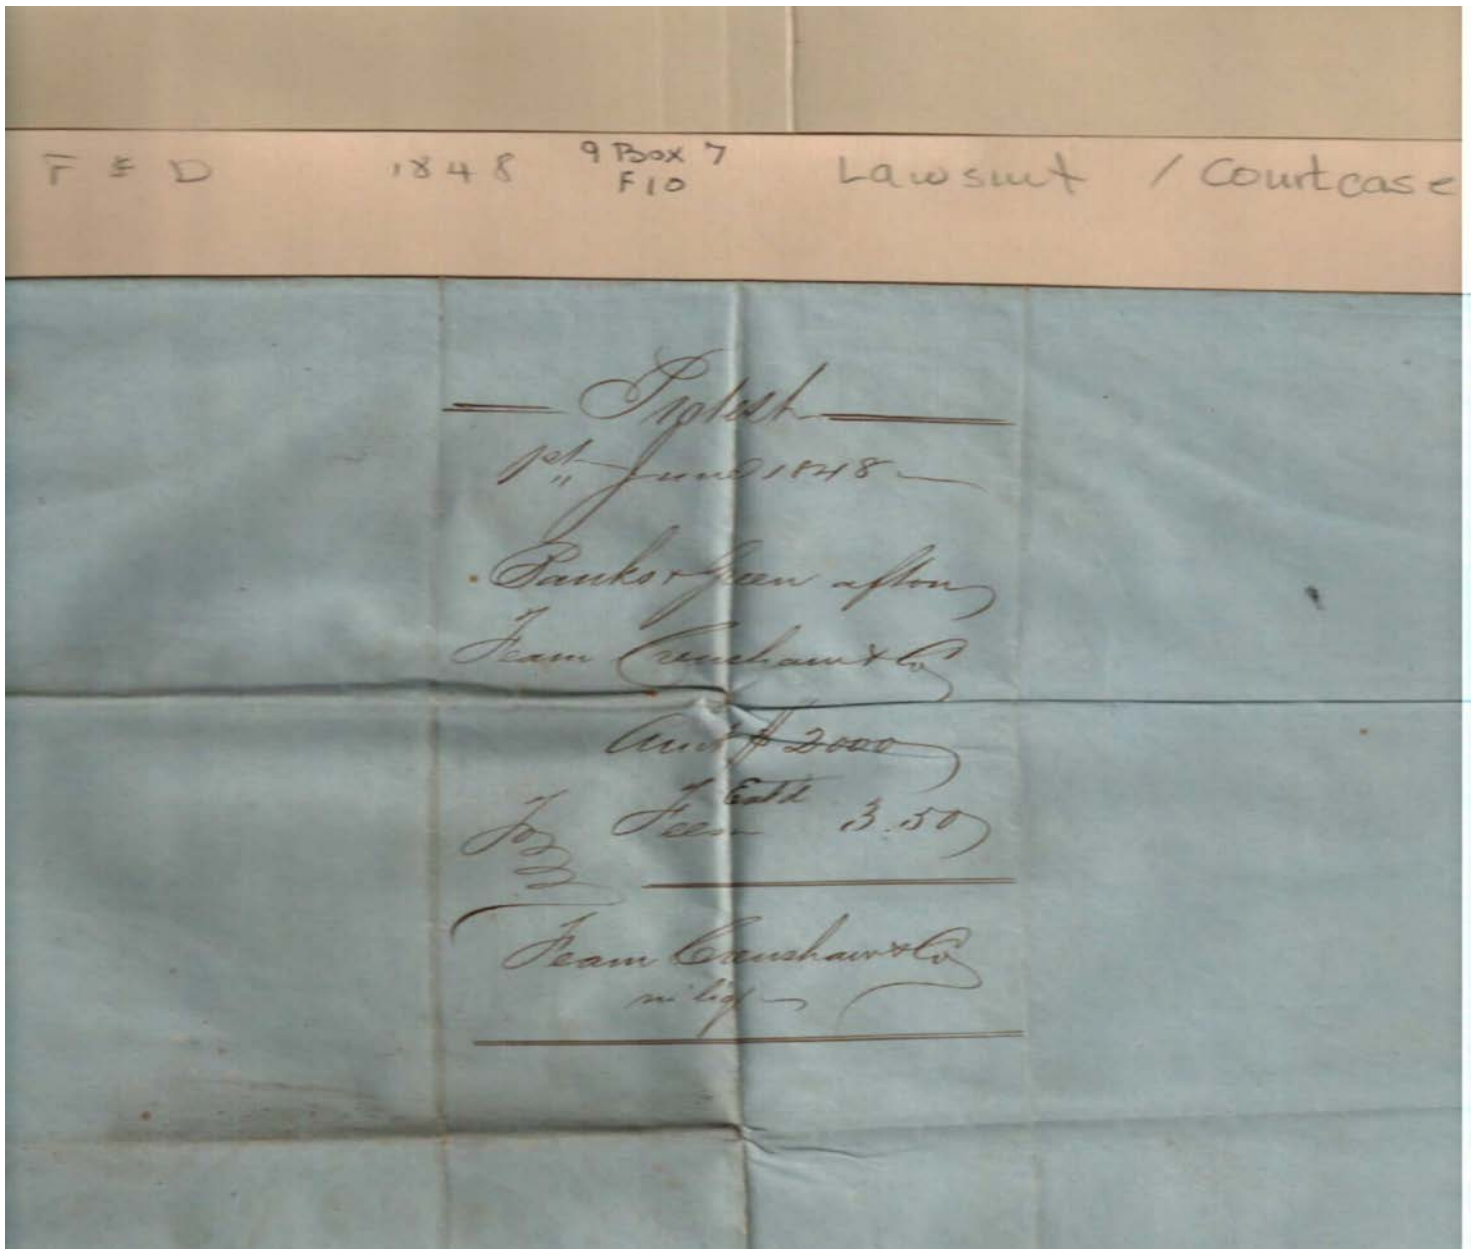 F & D 1848 9 Box 7 Lawsuit / Courtcase
F10
Protest
1st June 1848
Banks & Green
Feam Crenshaw & Co
Amt $2000
Entd
For Fees 3.50
Feam Crenshaw & Co